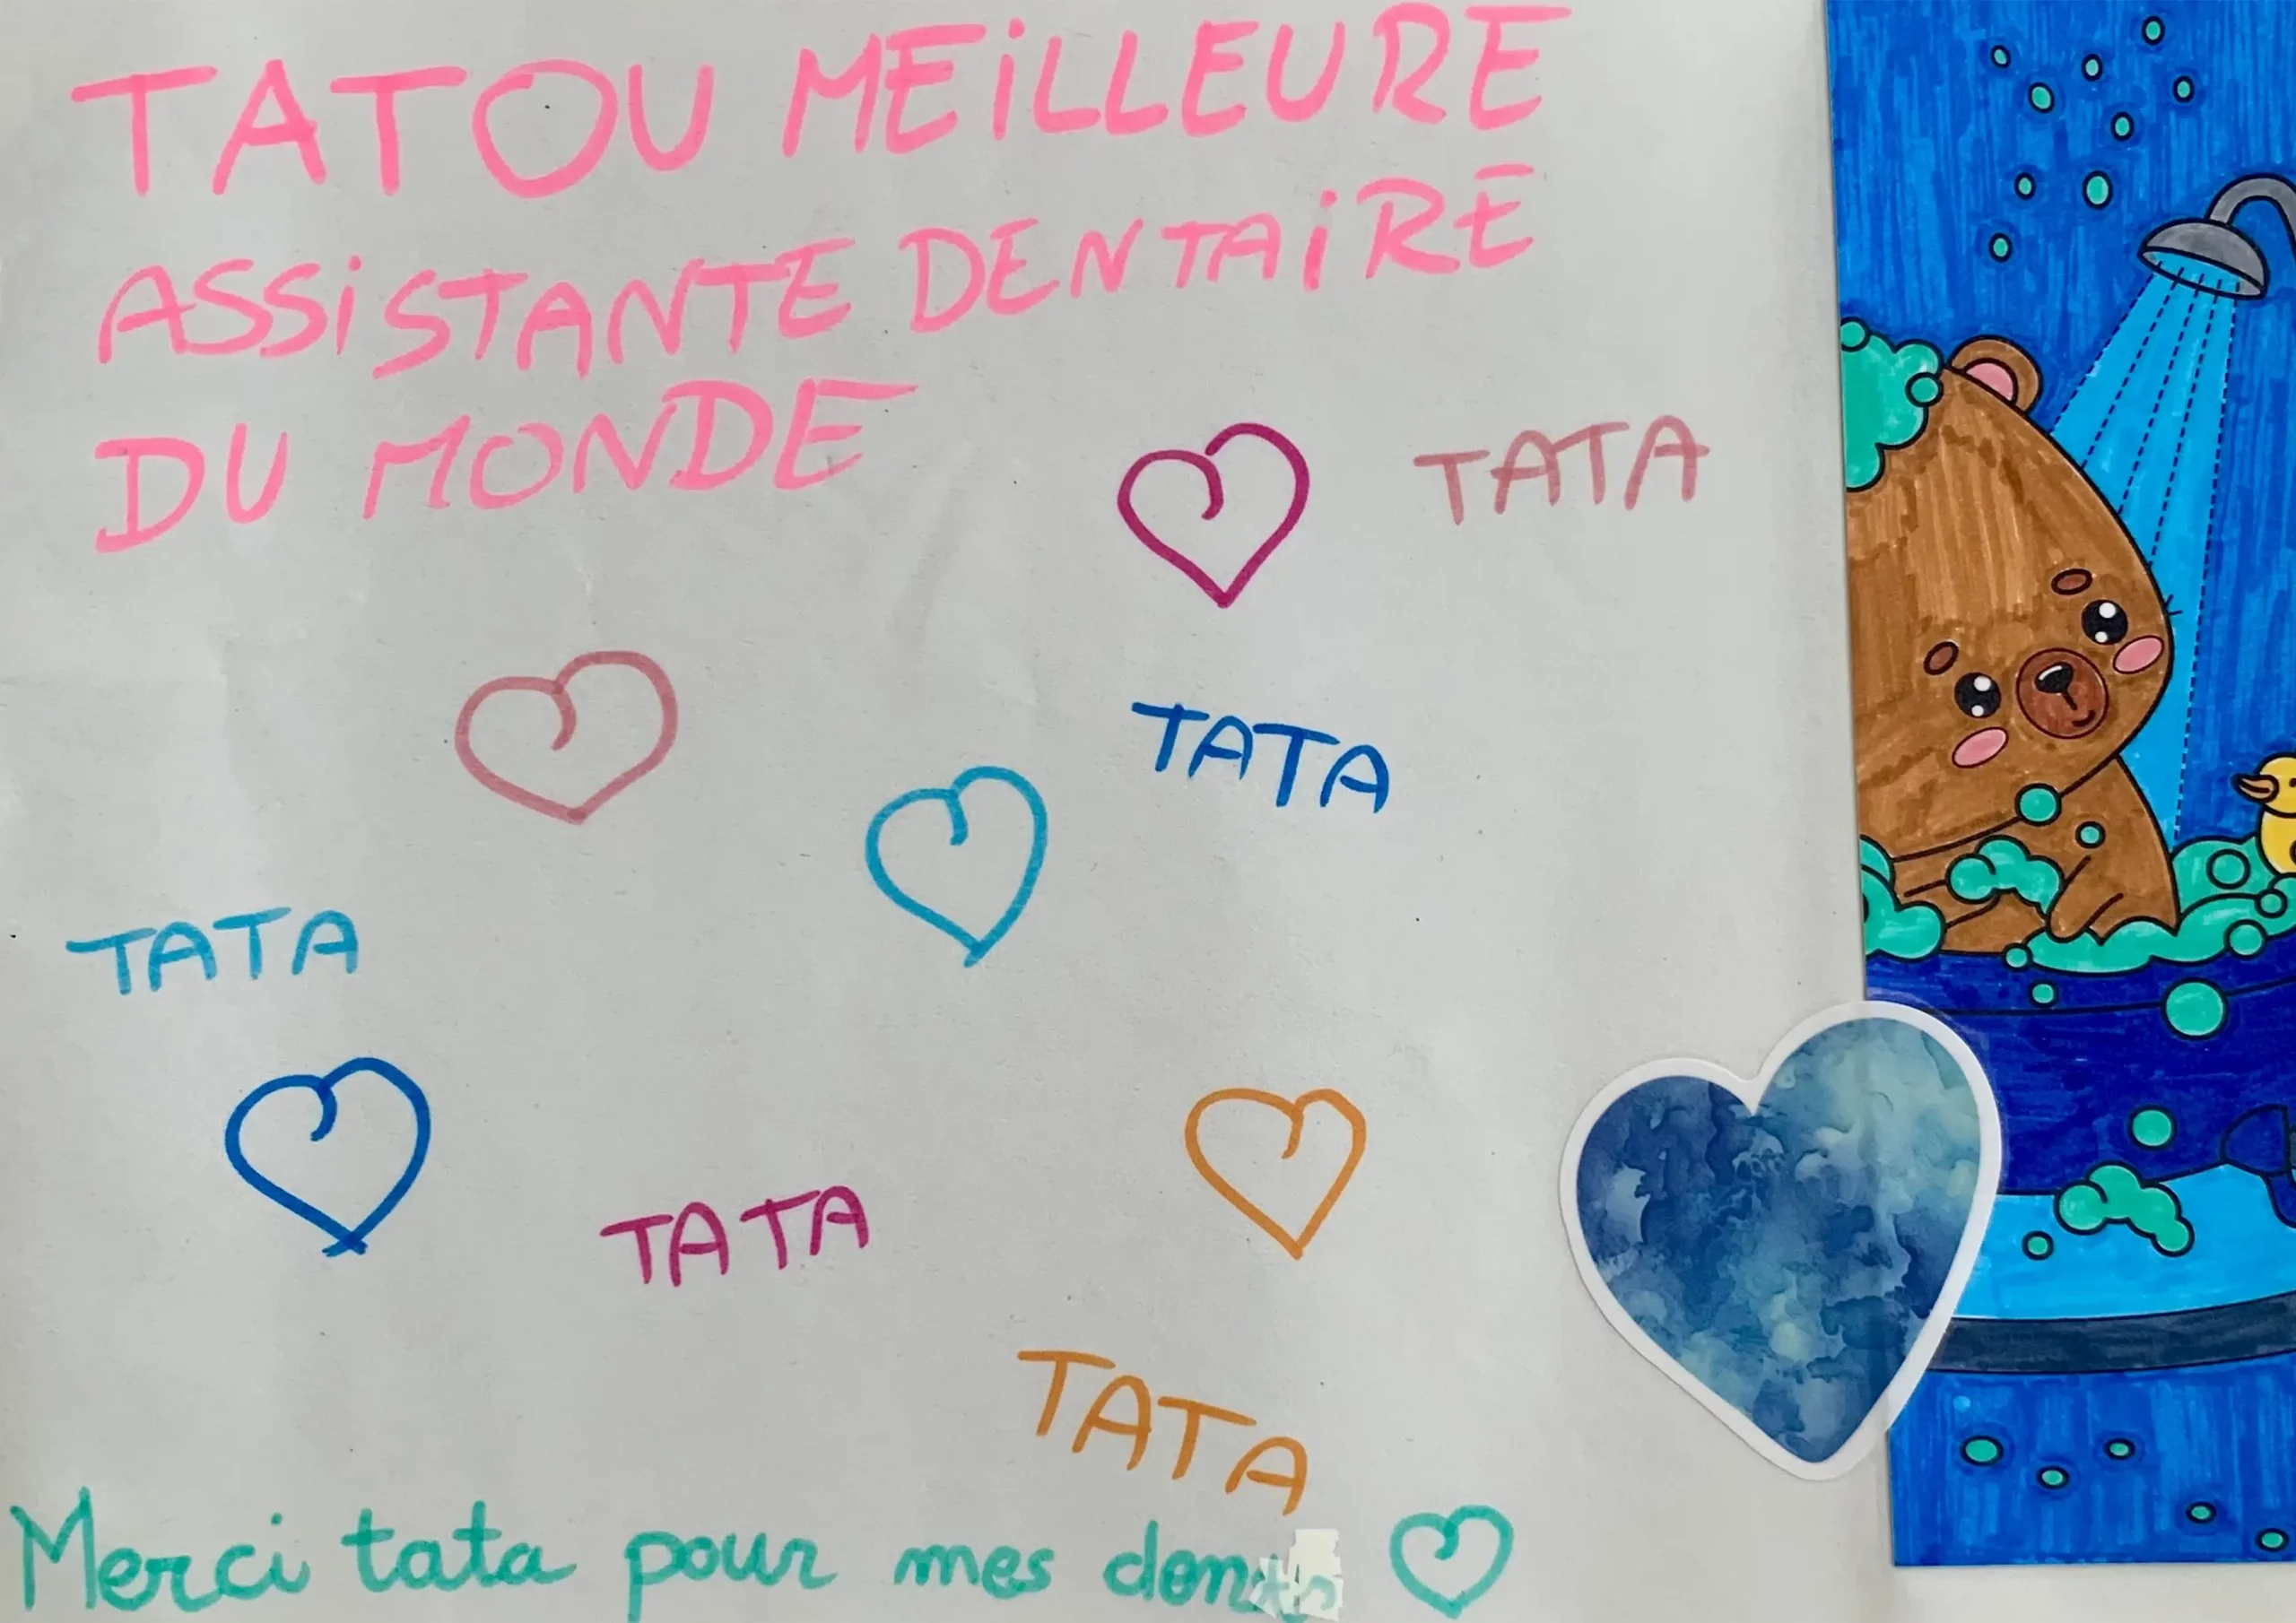 TATOU MEiLLEURE
ASSiSTANTE DENTAiRE
DU MONDE
TATA
TATA
TATA
TATA
TATA
Merci tata pour mes